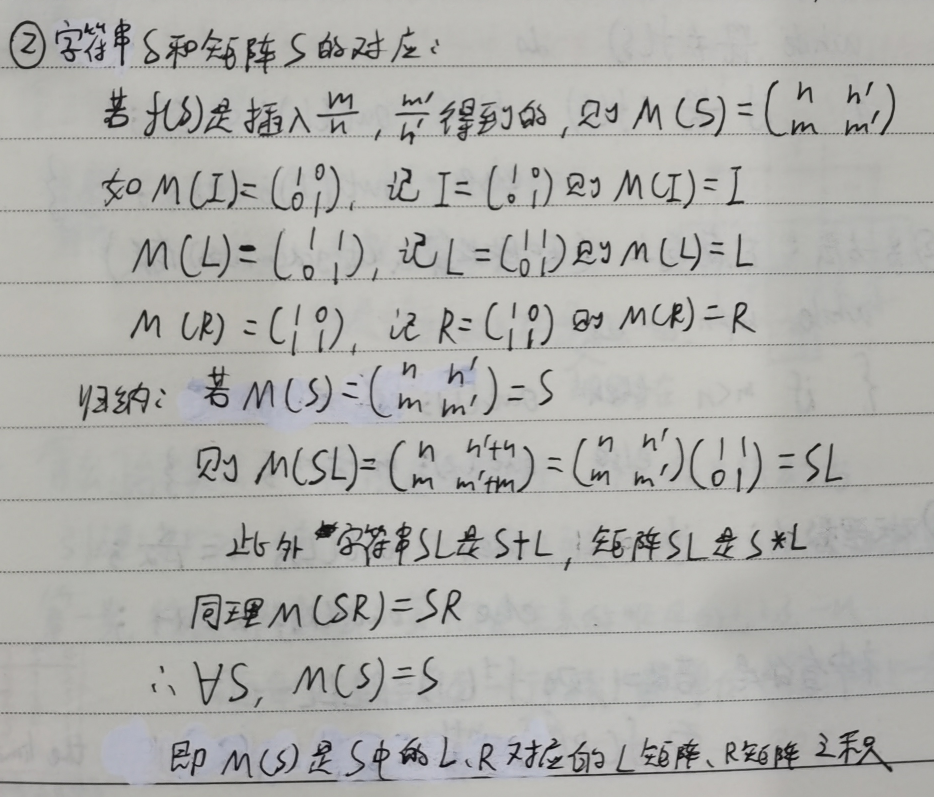 ②字符串S和矩阵S的对应：
若f(S)是插入m/n, m'/n'得到的,则M(S)=(n n' m m')
如M(I)=(1 0 0 1), 记I=(1 0 0 1)则M(I)=I
M(L)=(1 1 0 1), 记L=(1 1 0 1)则M(L)=L
M(R)=(1 0 1 1), 记R=(1 0 1 1)则M(R)=R
归纳：若M(S)=(n n' m m')=S
则M(SL)=(n n'+n m m'+m)=(n n' m m')(1 1 0 1)=SL
此外字符串SL是S+L,矩阵SL是S*L
同理M(SR)=SR
∴∀S, M(S)=S
即M(S)是S中的L、R对应的L矩阵、R矩阵之积